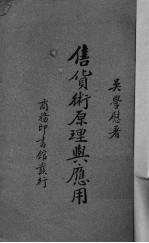 吳學慰著
售貨術原理與應用
商務印書館發行